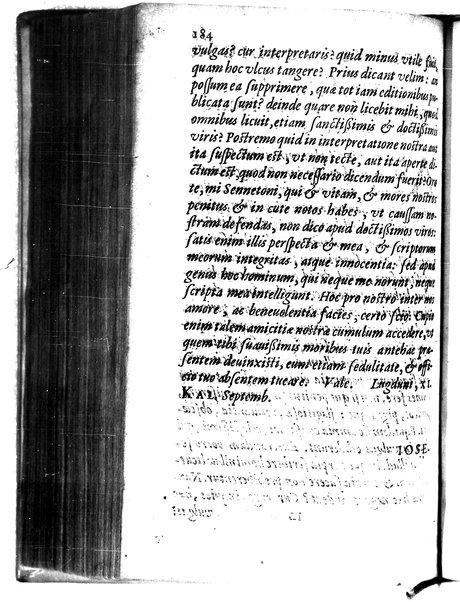 184
vulgas? cur interpretaris? quid minus vtile fuit,
quam hoc vlcus tangere? Prius dicant velim: an
possum ea supprimere, quæ tot iam editionibus pu-
blicata sunt? deinde quare non licebit mihi, quod
omnibus licuit, etiam sanctißimis & doctißimis
viris? Postremo quid in interpretatione nostra aut
ita suspectum est, vt non tecte, aut ita aperte di-
ctum est, quod non necessario dicendum fuerit: Oro
te, mi Sennetoni, qui & vitam, & mores nostros
penitus & in cute notos habes, vt caussam no-
stram defendas, non dico apud doctißimos viros:
satis enim illis perspecta & mea, & scriptorum
meorum integritas, atque innocentia: sed apud
genus hoc hominum, qui neque me norunt, neque
scripta mea intelligunt. Hoc pro nostro inter nos
amore, ac beneuolentia facies, certo scio. Cupio
enim talem amicitiæ nostræ cumulum accedere, vt
quem tibi suauißimis moribus tuis antehac præ-
sentem deuinxisti, eum etiam sedulitate, & offi-
cio tuo absentem tueare. Vale. Lugduni, XI.
KAL. Septemb.
IOSE-